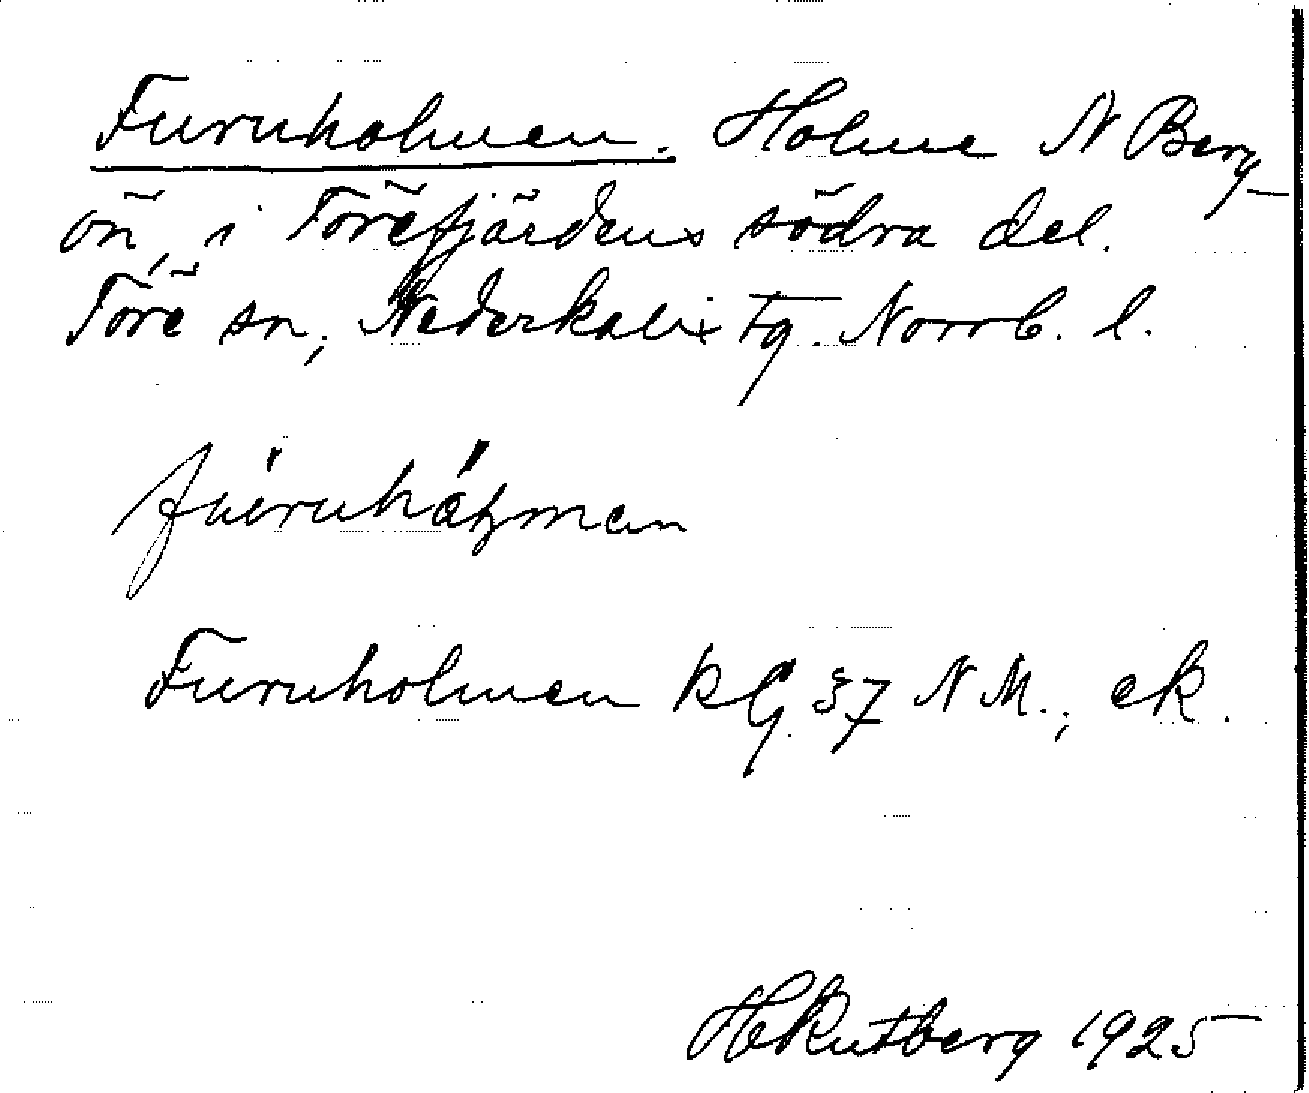 Furuholmen. Holme N Berg-
ön, i Törefjärdens södra del.
Töre sn, Nederkalix tg. Norrb. l.
Furuholmen kG 37 NM., ek.
H Rutberg 1925